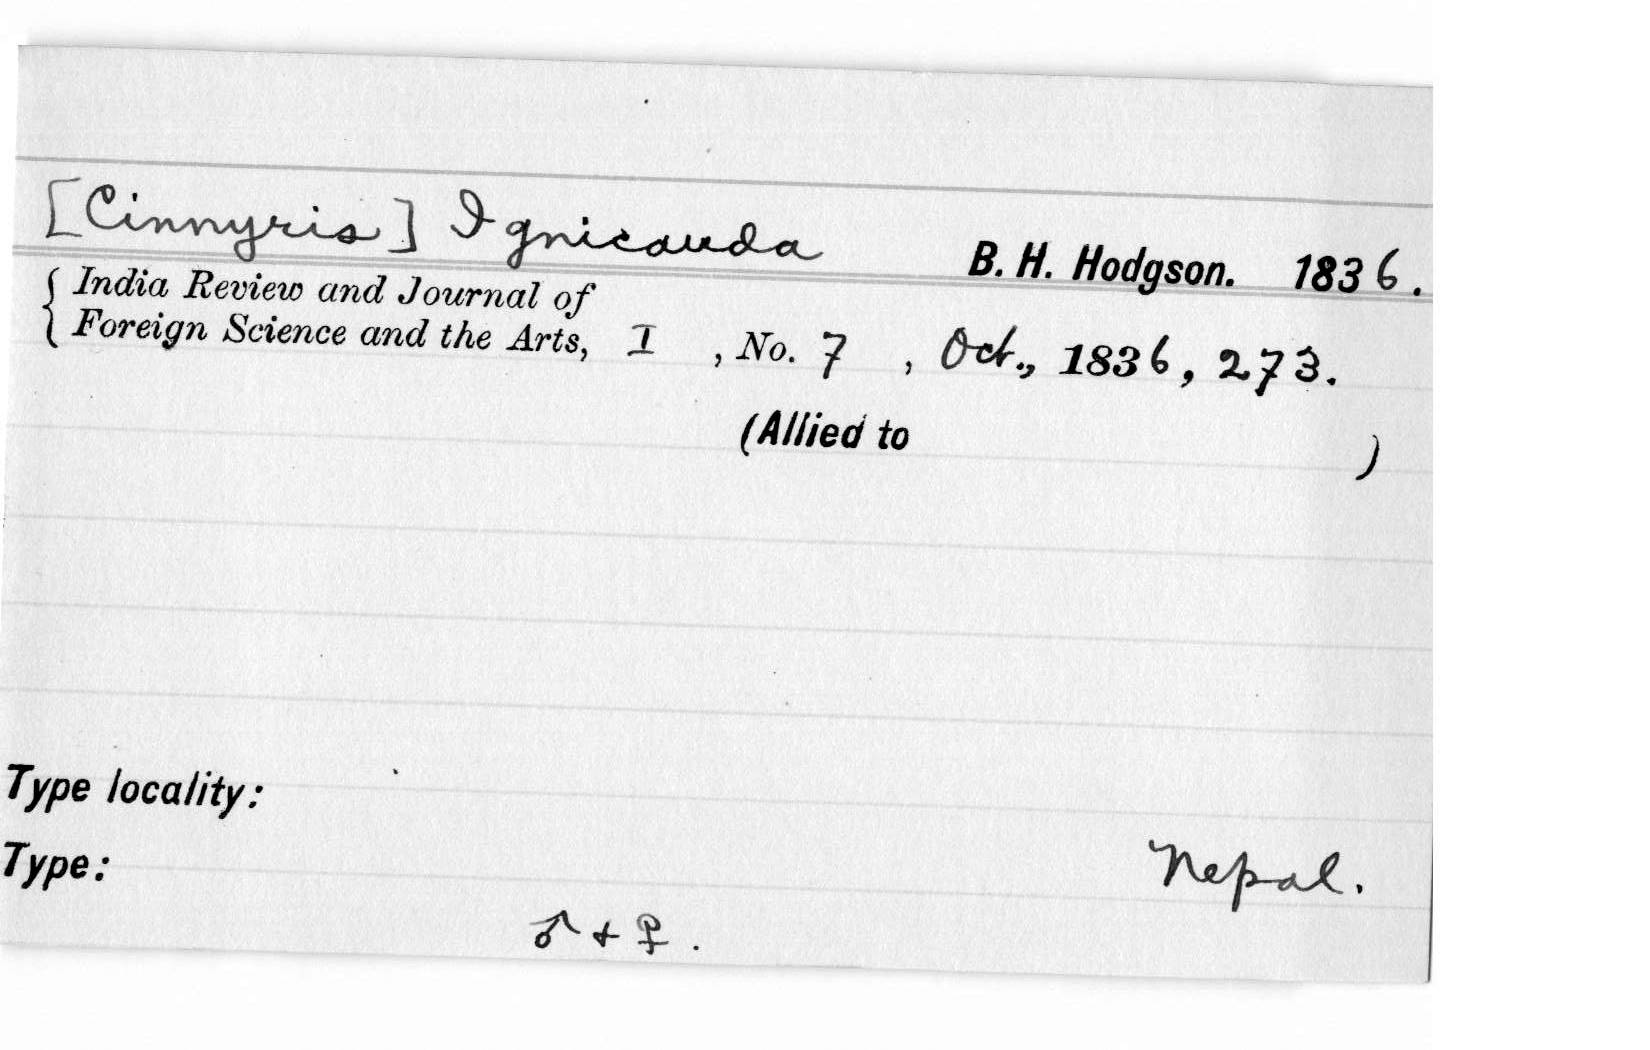 [Cinnyris] Ignicauda B. H. Hodgson. 1836.
{ India Review and Journal of
Foreign Science and the Arts, I , No. 7 , Oct., 1836, 273.
(Allied to )
Type locality:
Nepal.
Type:
♂ + ♀.